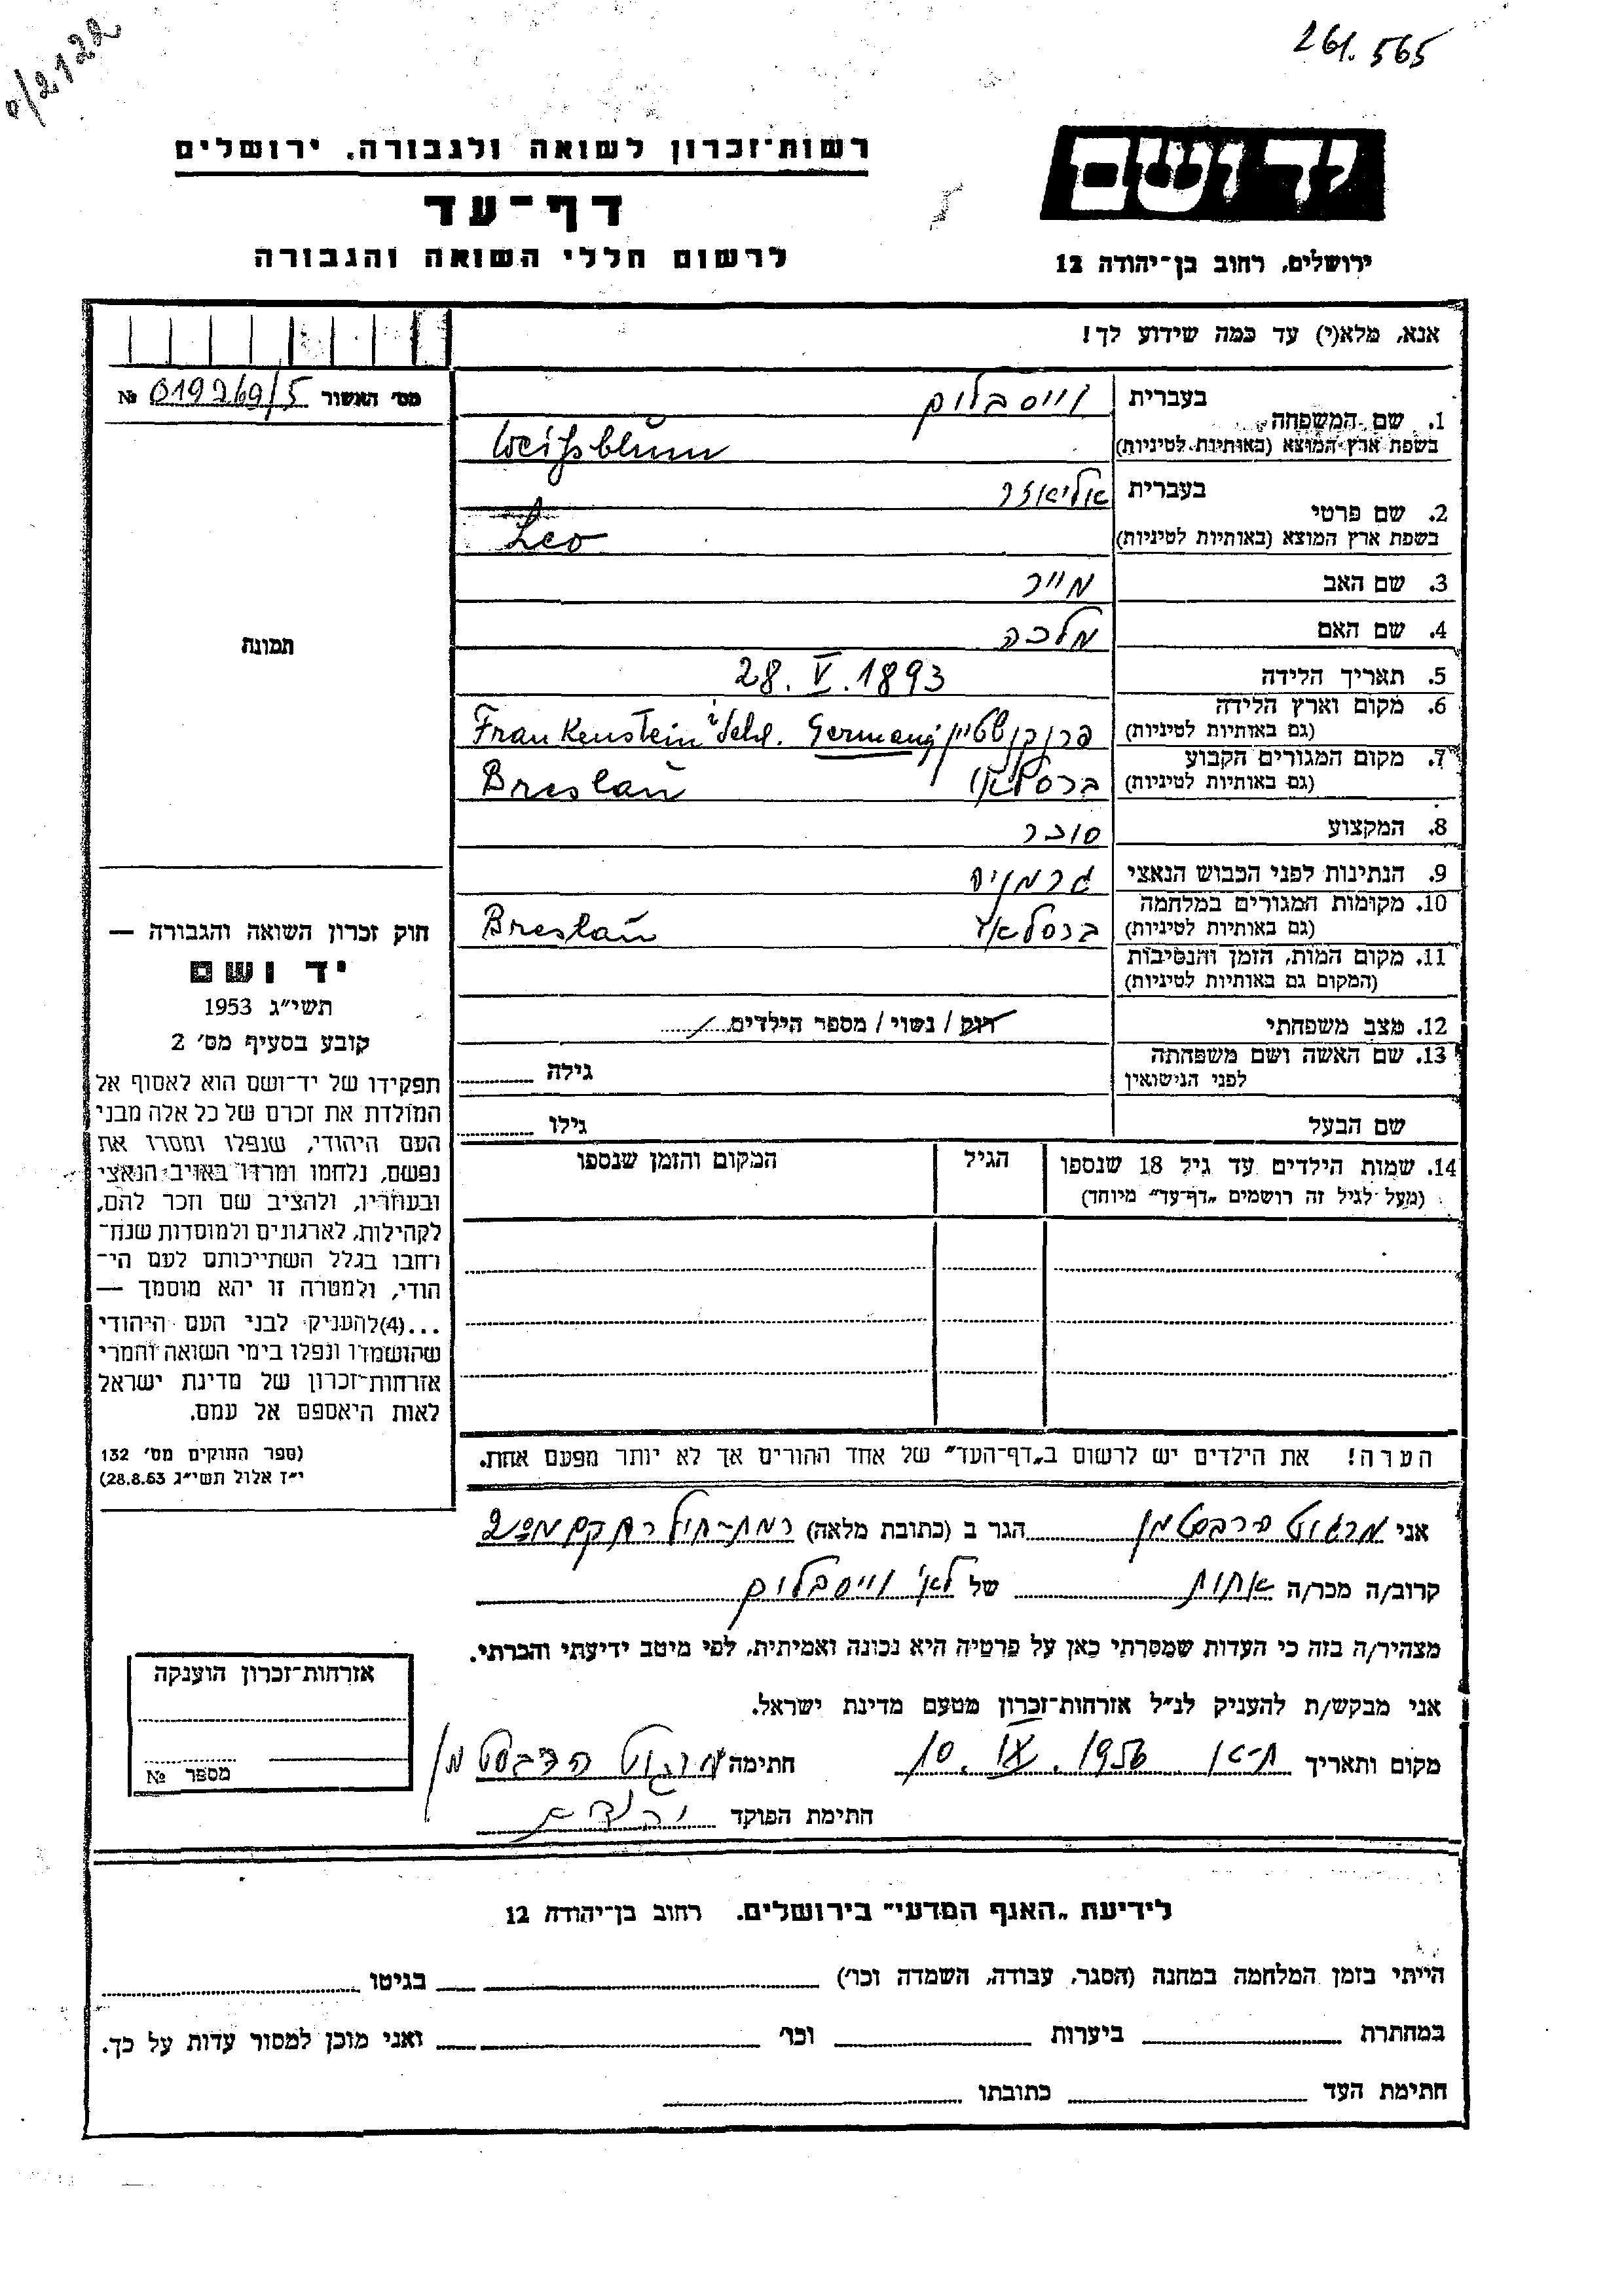 0/2122
261.565
רשות־זכרון לשואה ולגבורה, ירושלים
דף־עד
לרשום חללי השואה והגבורה
יד ושם
ירושלים, רחוב בן־יהודה 12
אנא, מלא(י) עד כמה שידוע לך!
מס׳ האשור 019269/5 №
תמונה
1. שם המשפחה בעברית וייסבלום
בשפת ארץ המוצא (באותיות לטיניות) Weissblum
2. שם פרטי בעברית אליאזר
בשפת ארץ המוצא (באותיות לטיניות) Leo
3. שם האב מייר
4. שם האם מלכה
5. תאריך הלידה 28. V. 1893
6. מקום וארץ הלידה (גם באותיות לטיניות) פרנקנשטיין Frankenstein i/Schl. Germany
7. מקום המגורים הקבוע (גם באותיות לטיניות) ברסלאו Breslau
8. המקצוע סוכר
9. הנתינות לפני הכבוש הנאצי גרמניה
10. מקומות המגורים במלחמה (גם באותיות לטיניות) ברסלאו Breslau
11. מקום המות, הזמן והנסיבות (המקום גם באותיות לטיניות)
12. מצב משפחתי רוק / נשוי / מספר הילדים
13. שם האשה ושם משפחתה לפני הנישואין גילה
שם הבעל גילו
14. שמות הילדים עד גיל 18 שנספו הגיל המקום והזמן שנספו
(מעל לגיל זה רושמים „דף־עד״ מיוחד)
הערה! את הילדים יש לרשום ב„דף־העד״ של אחד ההורים אך לא יותר מפעם אחת.
חוק זכרון השואה והגבורה —
יד ושם
תשי״ג 1953
קובע בסעיף מס׳ 2
תפקידו של יד־ושם הוא לאסוף אל
המולדת את זכרם של כל אלה מבני
העם היהודי, שנפלו ומסרו את
נפשם, נלחמו ומרדו באויב הנאצי
ובעוזריו, ולהציב שם וזכר להם,
לקהילות, לארגונים ולמוסדות שנח־
רבו בגלל השתייכותם לעם הי־
הודי, ולמטרה זו יהא מוסמך —
...(4) להעניק לבני העם היהודי
שהושמדו ונפלו בימי השואה והמרי
אזרחות־זכרון של מדינת ישראל
לאות היאספם אל עמם.
(ספר החוקים מס׳ 132
י״ז אלול תשי״ג 28.8.53)
אני מרגוט הרבסטמן הגר ב (כתובת מלאה) רמת־חול
קרוב/ה מכר/ה אחות של לאו וייסבלום
מצהיר/ה בזה כי העדות שמסרתי כאן על פרטיה היא נכונה ואמיתית, לפי מיטב ידיעתי והכרתי.
אני מבקש/ת להעניק לנ״ל אזרחות־זכרון מטעם מדינת ישראל.
מקום ותאריך ת-א 10. IX. 1956 חתימה מרגוט הרבסטמן
חתימת הפוקד
אזרחות־זכרון הוענקה
מספר №
לידיעת „האגף המדעי״ בירושלים. רחוב בן־יהודה 12
הייתי בזמן המלחמה במחנה (הסגר, עבודה, השמדה וכו׳) בגיטו
במחתרת ביערות וכו׳ ואני מוכן למסור עדות על כך.
חתימת העד כתובתו